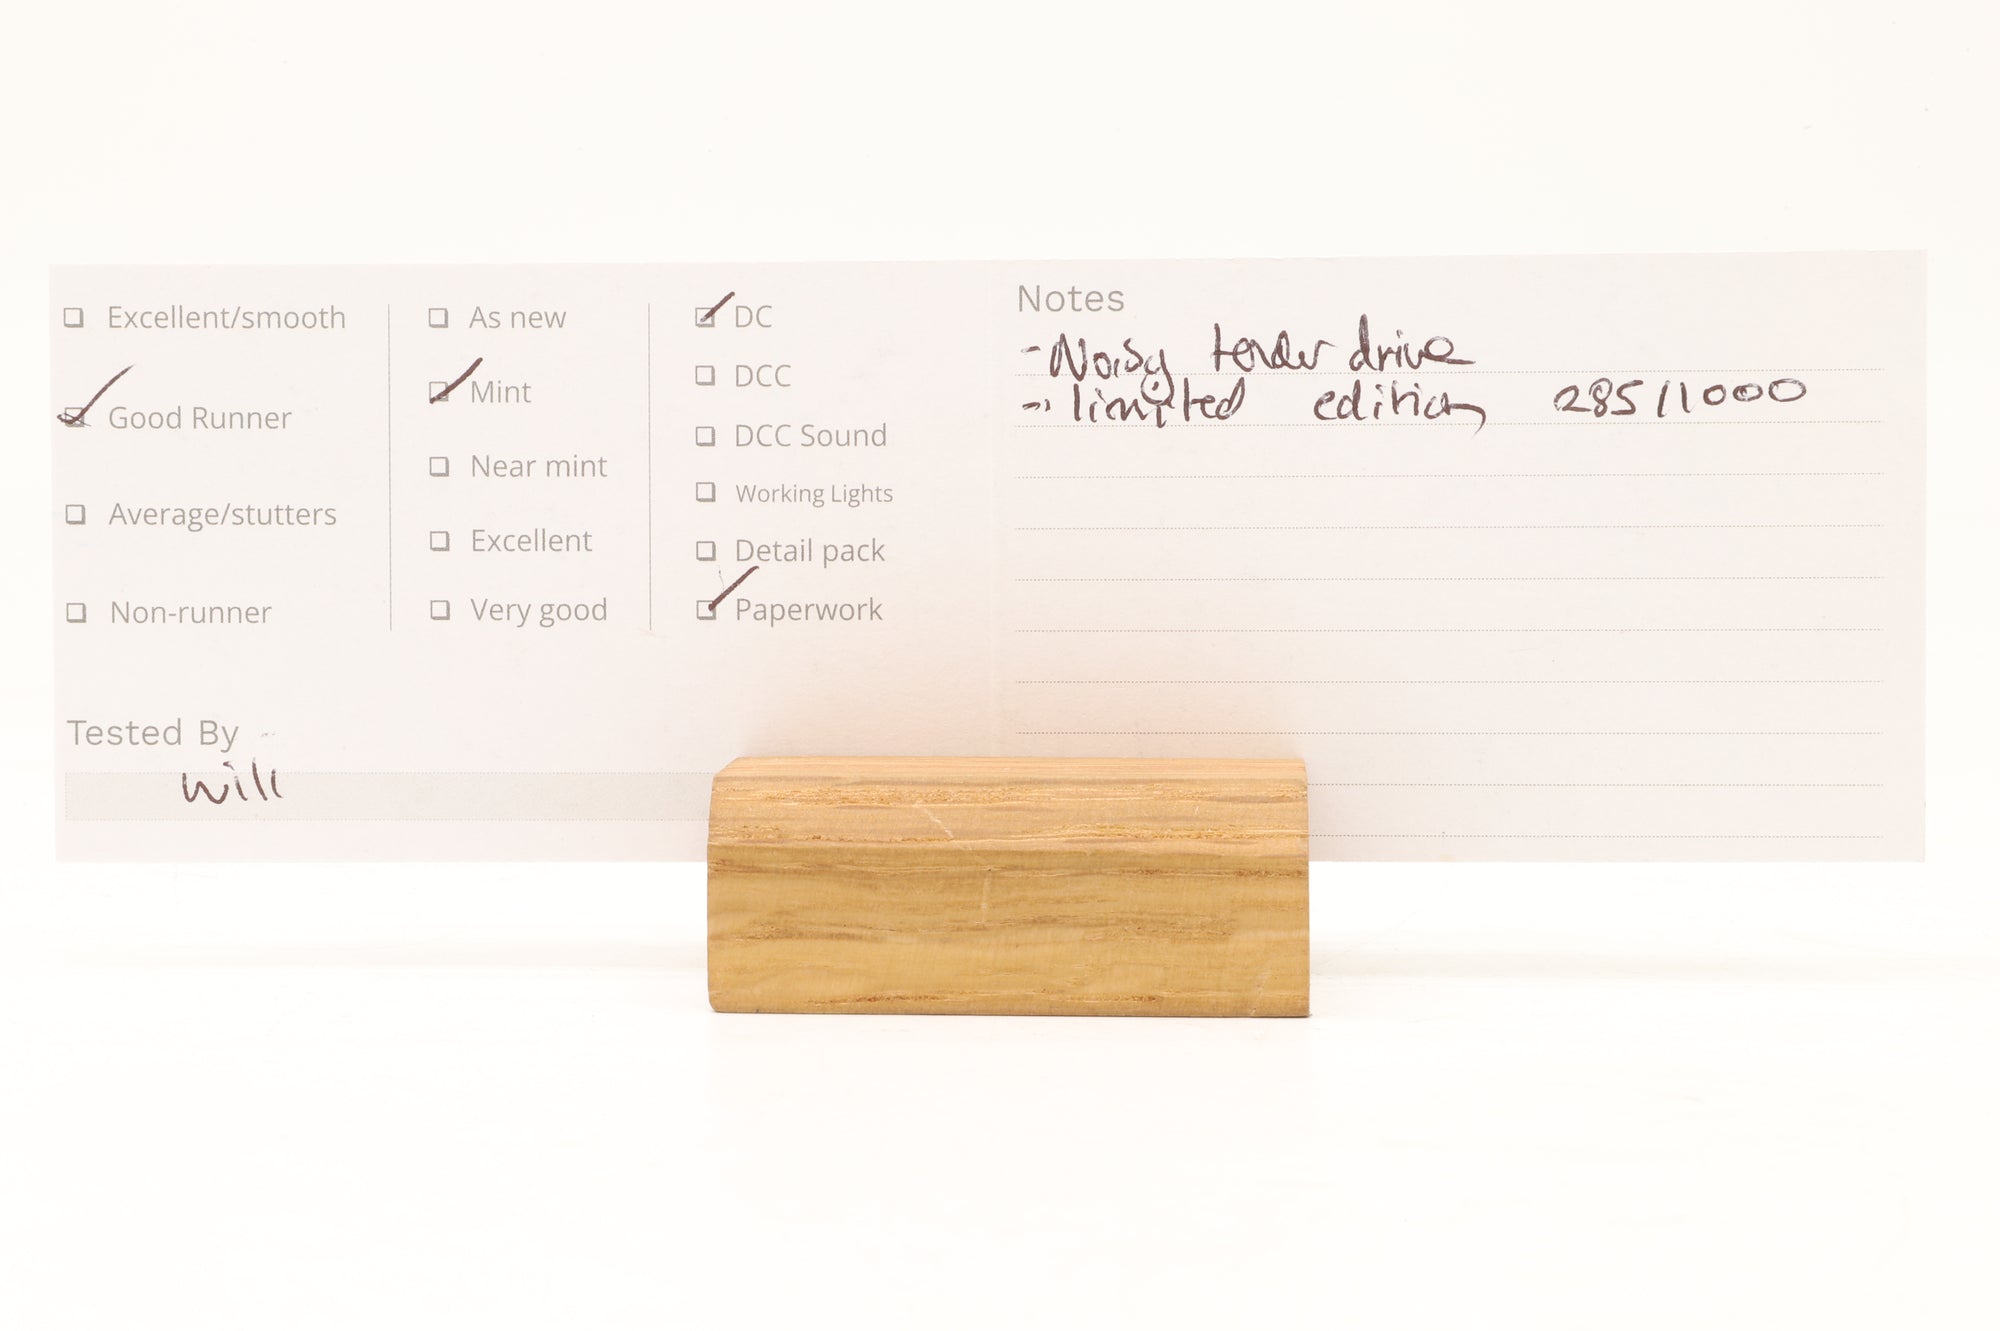 Excellent/smooth
Good Runner
Average/stutters
Non-runner
As new
Mint
Near mint
Excellent
Very good
DC
DCC
DCC Sound
Working Lights
Detail pack
Paperwork
Tested By
Will
Notes
- Noisy tender drive
- limited edition 285/1000